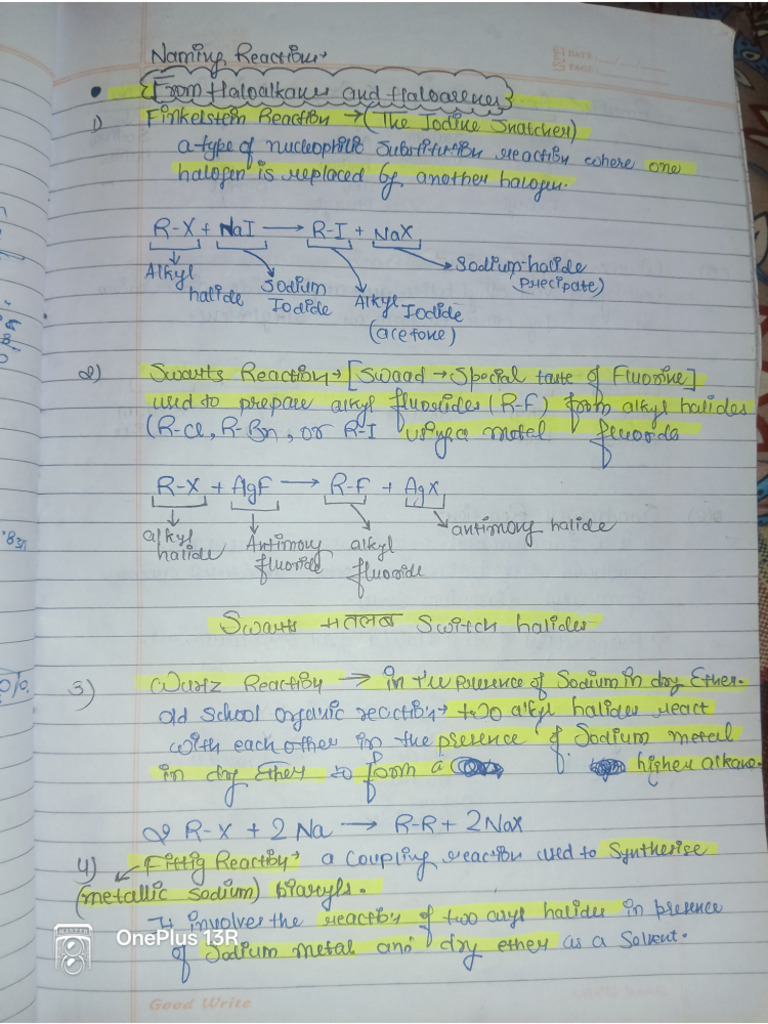 Naming Reactions
DATE
PAGE
• From Haloalkanes and Haloarenes
1) Finkelstein Reaction → (The Iodine Snatcher)
a type of nucleophilic substitution reaction where one
halogen is replaced by another halogen.
R-X + NaI → R-I + NaX
Alkyl halide
Sodium Iodide
Alkyl Iodide
(acetone)
Sodium halide
(precipate)
2) Swarts Reaction → [Swaad → Special taste of Fluorine]
used to prepare alkyl fluorides (R-F) from alkyl halides
(R-Cl, R-Bn, or R-I using a metal fluoride
R-X + AgF → R-F + AgX
alkyl halide
Antimony fluoride
alkyl fluoride
antimony halide
Swarts मतलब Switch halides
3) Wurtz Reaction → in the presence of Sodium in dry Ether.
old school organic reaction → two alkyl halides react
with each other in the presence of Sodium metal
in dry Ether to form a higher alkane.
2 R-X + 2 Na → R-R + 2 NaX
4) Fittig Reaction → a coupling reaction used to Synthesise
(metallic sodium) biaryls.
It involves the reaction of two aryl halides in presence
of Sodium metal and dry ether as a Solvent.
OnePlus 13R
Good Write